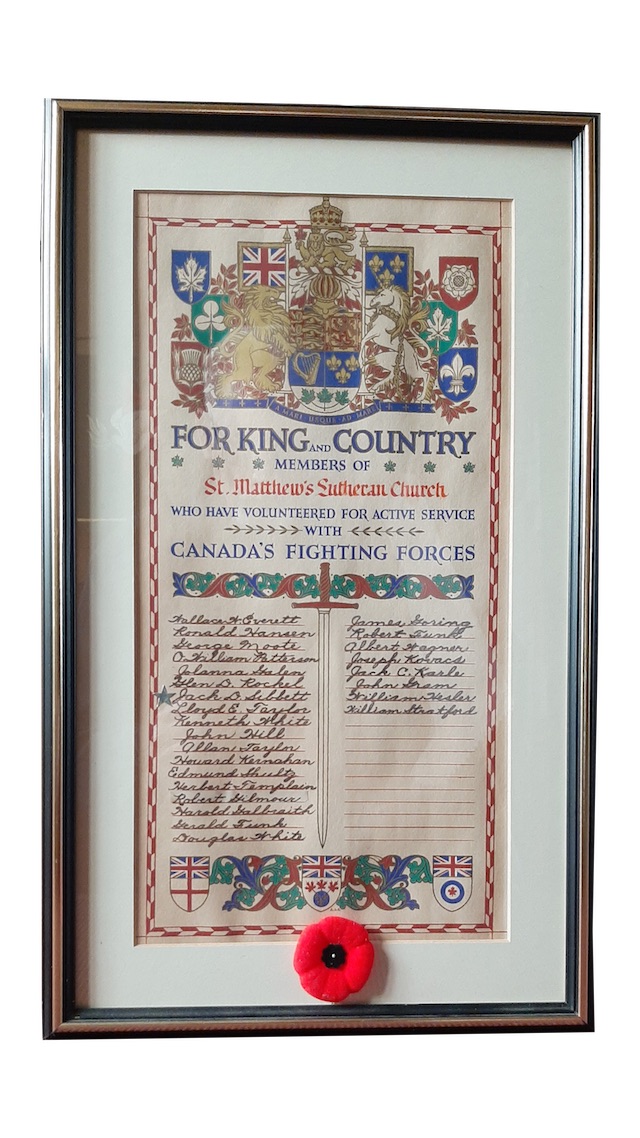 A MARI USQUE AD MARE
FOR KING AND COUNTRY
MEMBERS OF
St. Matthew's Lutheran Church
WHO HAVE VOLUNTEERED FOR ACTIVE SERVICE
WITH
CANADA'S FIGHTING FORCES
Wallace W. Everett
Ronald Hansen
George Moote
O. William Patterson
Jolanna Galen
Glen D. Rockel
Jack D. Siblett
Lloyd E. Taylor
Kenneth White
John Hill
Allan Taylor
Howard Kernahan
Edmund Shultz
Herbert Templain
Robert Gilmour
Harold Galbraith
Gerald Funk
Douglas White
James Goring
Robert Funk
Albert Wagner
Joseph Kovacs
Jack C. Karle
John Gram
William Hesler
William Stratford